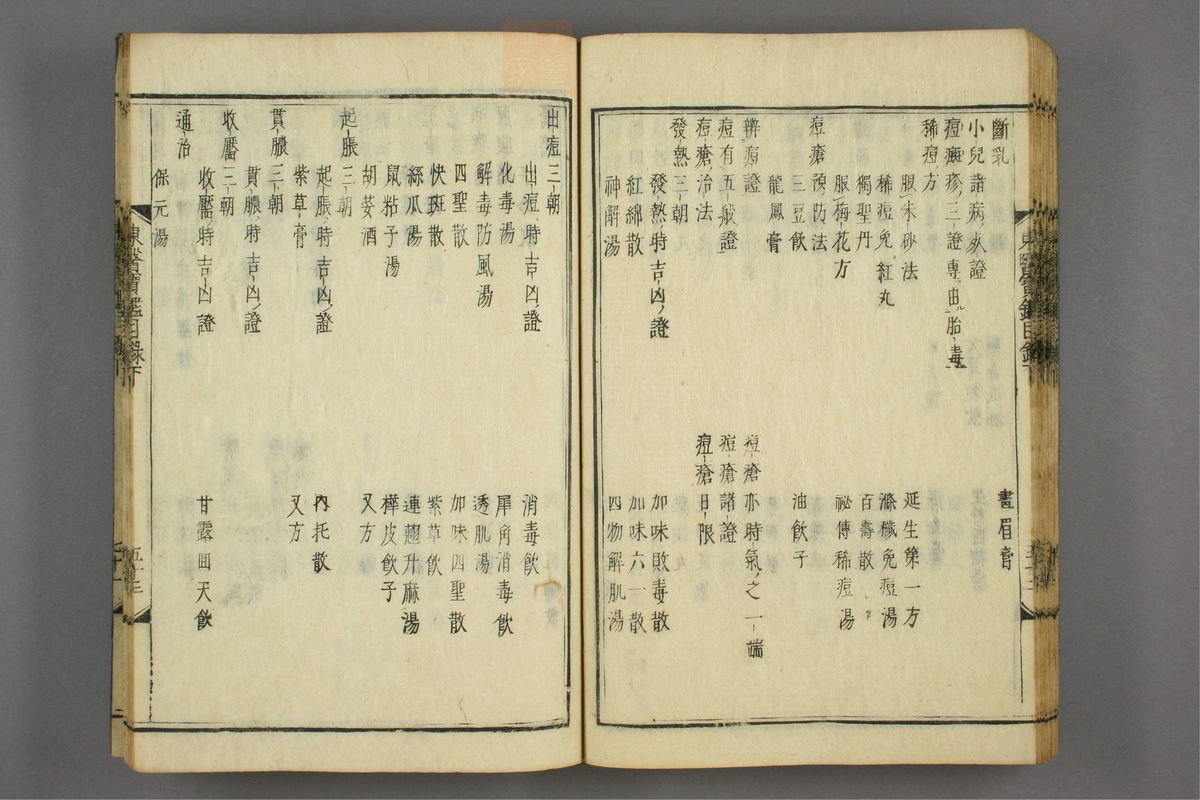 斷乳
畫眉膏
小兒諸病死證
痘癍疹三證專由胎毒
稀痘方
延生第一方
服朱砂法
滌穢免痘湯
稀痘兔紅丸
百壽散
獨聖丹
祕傳稀痘湯
服梅花方
痘瘡預防法
三豆飮
油飮子
龍鳳膏
辨痘證
痘瘡亦時氣之一端
痘有五般證
痘瘡諸證
痘瘡治法
痘瘡日限
發熱三朝
發熱時吉凶證
加味敗毒散
紅綿散
加味六一散
神解湯
四物解肌湯
出痘三朝
出痘時吉凶證
消毒飮
化毒湯
犀角消毒飮
解毒防風湯
透肌湯
四聖散
加味四聖散
快斑散
紫草飮
絲瓜湯
連翹升麻湯
鼠粘子湯
樺皮飮子
胡荽酒
又方
起脹三朝
起脹時吉凶證
內托散
紫草膏
又方
貫膿三朝
貫膿時吉凶證
收靨三朝
收靨時吉凶證
甘露回天飮
通治
保元湯
東醫寶鑑目錄下
五十三